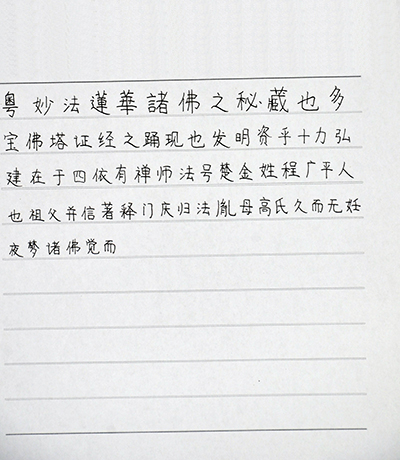 粤妙法蓮華諸佛之秘藏也多
宝佛塔证经之踊现也发明资乎十力弘
建在于四依有禅师法号楚金姓程广平人
也祖父并信著释门庆归法胤母高氏久而无妊
夜梦诸佛觉而